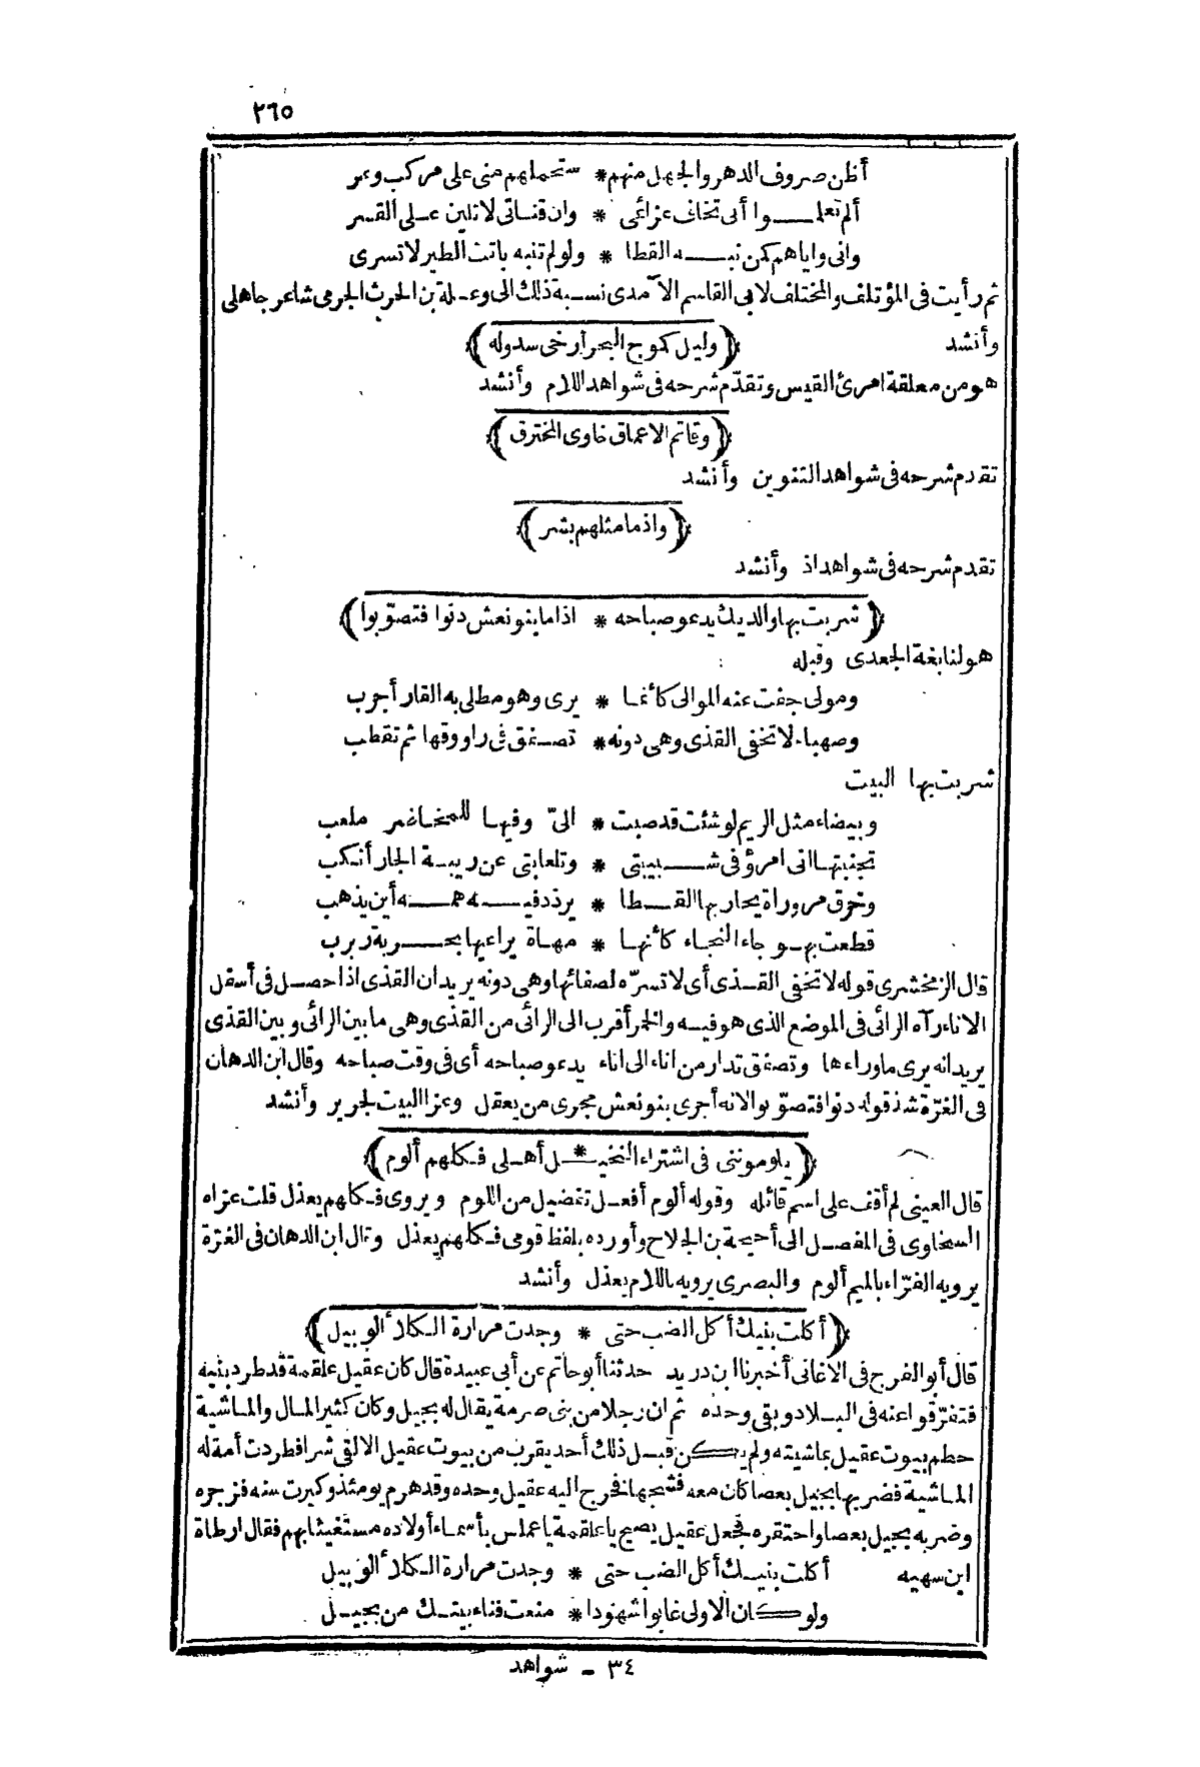 ٢٦٥
أظن صروف الدهر والجهل منهم * ستحملهم منى على مركب وعر
ألم تعلموا أنى تخاف عزائمى * وان قناتى لا تلين على القسر
وانى واياهم كمن نبه القطا * ولو لم تنبه باتت الطير لا تسرى
ثم رأيت فى المؤتلف والمختلف لابى القاسم الآمدى نسبة ذلك الى وعلة بن الحرث الجرمى شاعر جاهلى
وأنشد (وليل كموج البحر أرخى سدوله)
هو من معلقة امرئ القيس وتقدّم شرحه فى شواهد اللام وأنشد
(وقاتم الاعماق خاوى المخترق)
تقدم شرحه فى شواهد التنوين وأنشد
(واذ ما مثلهم بشر)
تقدم شرحه فى شواهد اذ وأنشد
(شربت بها والديك يدعو صباحه * اذا ما بنو نعش دنوا فتصوّبوا)
هو لنابغة الجعدى وقبله
ومولى جفت عنه الموالى كأنما * يرى وهو مطلى به القار أجرب
وصهباء لا تخفى القذى وهى دونه * تصفق فى راووقها ثم تقطب
شربت بها البيت
وبيضاء مثل الريم لو شئت قد صبت * الىّ وفيها للمخاصر ملعب
تجنبتها انى امرؤ فى شبيبتى * وتلعابتى عن ريبة الجار أنكب
وخرق مروراة يحار بها القطا * يردد فيه همه أين يذهب
قطعت بهوجاء النجاء كأنها * مهاة يراعيها بحربة ربرب
قال الزمخشرى قوله لا تخفى القذى أى لا تسرّه لصفائها وهى دونه يريد ان القذى اذا حصل فى أسفل
الاناء رآه الرائى فى الموضع الذى هو فيه والخر أقرب الى الرائى من القذى وهى ما بين الرائى وبين القذى
يريد انه يرى ما وراءها وتصفق تدار من اناء الى اناء يدعو صباحه أى فى وقت صباحه وقال ابن الدهان
فى الغرّة شذ قوله دنوا فتصوّبوا لانه أجرى بنو نعش مجرى من يعقل وعزا البيت لجرير وأنشد
(يلوموننى فى اشتراء النخيـ * ـل أهلى فكلهم ألوم)
قال العينى لم أقف على اسم قائله وقوله ألوم أفعل تفضيل من اللوم ويروى فكلهم يعذل قلت عزاه
السخاوى فى المفصل الى أحيحة بن الجلاح وأورده بلفظ قومى فكلهم يعذل وقال ابن الدهان فى الغرّة
يرويه الفرّاء بالميم ألوم والبصرى يرويه باللام يعذل وأنشد
(أكلت بنيك أكل الضب حتى * وجدت مرارة الكلأ الوبيل)
قال أبو الفرج فى الاغانى أخبرنا ابن دريد حدثنا أبو حاتم عن أبى عبيدة قال كان عقيل علقمة قد طرد بنيه
فتفرّقوا عنه فى البلاد وبقى وحده ثم ان رجلا من بنى صرمة يقال له بجيل وكان كثير المال والماشية
حطم بيوت عقيل بماشيته ولم يكن قبل ذلك أحد يقرب من بيوت عقيل الا لقى شرا فطردت أمة له
الماشية فضربها بجيل بعصا كان معه فشجها فخرج اليه عقيل وحده وقد هرم يومئذ وكبرت سنه فزجره
وضربه بجيل بعصا واحتقره فجعل عقيل يصيح يا علقمة يا عملس بأسماء أولاده مستغيثا بهم فقال ارطاة
ابن سهيه أكلت بنيك أكل الضب حتى * وجدت مرارة الكلأ الوبيل
ولو كان الاولى غابوا شهودا * منعت فناء بيتك من بجيل
٣٤ - شواهد